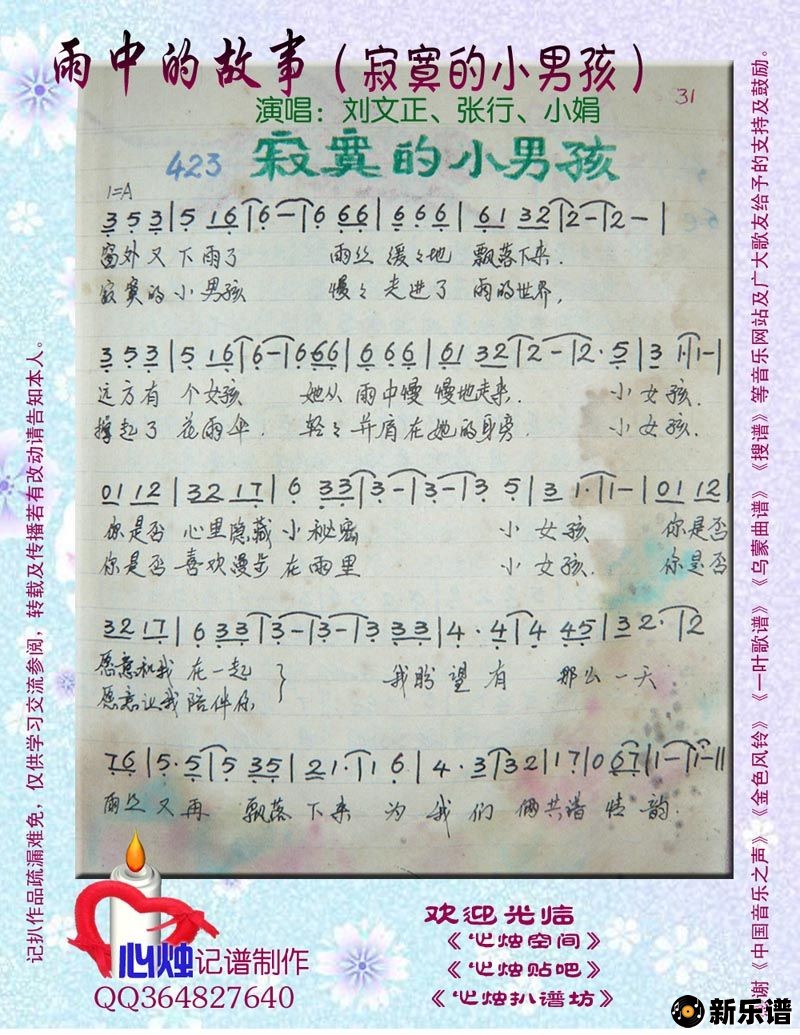 雨中的故事（寂寞的小男孩）
演唱：刘文正、张行、小娟
31
423 寂寞的小男孩
1=A
3 5 3 | 5 16 | 6 - | 6 66 | 6 6 6 | 61 32 | 2 - | 2 - |
窗外又下雨了 雨丝缓々地 飘落下来.
寂寞的小男孩 慢々走进了 雨的世界,
3 5 3 | 5 16 | 6 - | 6 66 | 6 6 6 | 61 32 | 2 - | 2 · 5 | 3 1· | 1 - |
远方有个女孩 她从雨中慢慢地走来. 小女孩.
撑起了花雨伞. 轻々并肩在她的身旁. 小女孩.
01 12 | 32 17 | 6 33 | 3 - | 3 - | 3 5 | 3 1· | 1 - | 01 12 |
你是否 心里隐藏小秘密 小女孩 你是否
你是否 喜欢漫步在雨里 小女孩. 你是否
32 17 | 6 33 | 3 - | 3 - | 3 33 | 4 · 4 | 4 45 | 32 · | 2
愿意和我在一起 } 我盼望有 那么一天
愿意让我陪伴你
76 | 5 · 5 | 5 35 | 21 · | 1 6 | 4 · 3 | 32 | 17 | 0 67 | 1 - | 1 - ||
雨丝又再 飘落下来 为我们 俩共谱情韵.
记扒作品疏漏难免，仅供学习交流参阅，转载及传播若有改动请告知本人。
谢《中国音乐之声》《金色风铃》《一叶歌谱》《乌蒙曲谱》《搜谱》等音乐网站及广大歌友给予的支持及鼓励。
心烛记谱制作
QQ364827640
欢迎光临
《心烛空间》
《心烛贴吧》
《心烛扒谱坊》
新乐谱